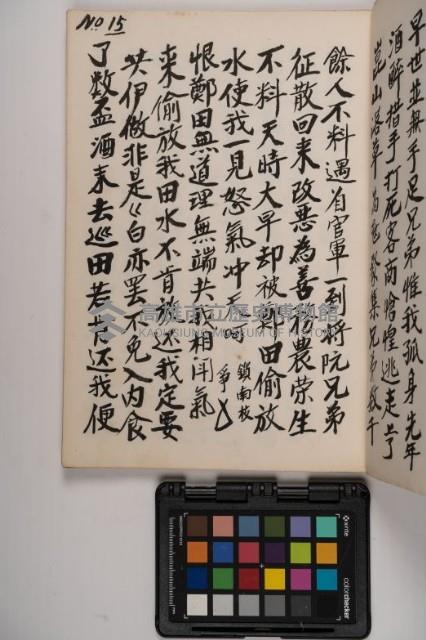 早世並無手足兄弟惟我孤身先年
酒醉措手打死客商惶逃走
山落草為聚集兄弟数千
No 15
餘人不料遇着官軍一到将阮兄弟
征散回来改悪為善務農荣生
不料天時大旱却被鄭田偷放
水使我一見怒氣冲天
鎖南枝
恨鄭田無道理無端共我相鬧氣
爭
来偷放我田水不肯放还我定要
共伊做非是々白亦罢不免入内食
了数盃酒来去巡田若肯还我便
高雄市立歷史博物館
KAOHSIUNG MUSEUM OF HISTORY
x-rite
colorchecker